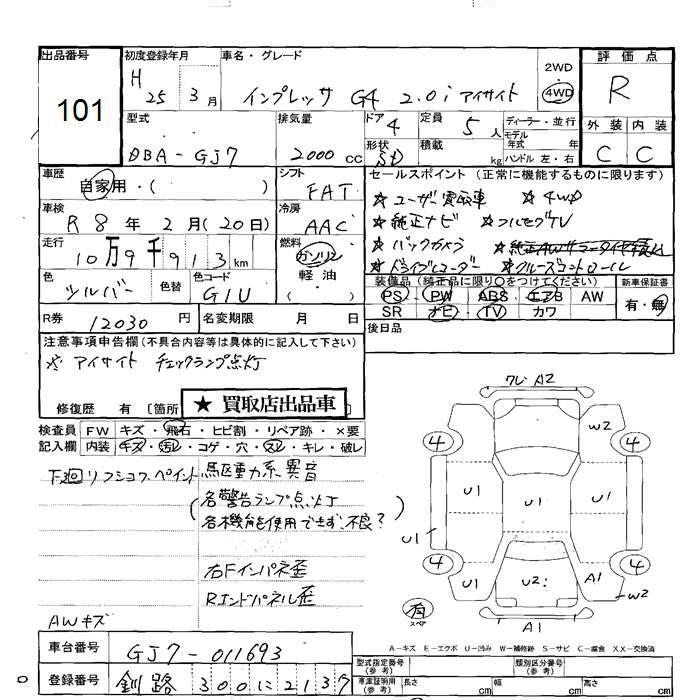 出品番号
101
初度登録年月
H 25 3月
車名・グレード
インプレッサ G4 2.0i アイサイト
2WD
4WD
評価点
R
外装 内装
C C
型式
DBA-GJ7
排気量
2000cc
ドア
4
定員
5人
形状
SD
積載
kg
ディーラー・並行
モデル
年式 年
ハンドル 左・右
車歴
自家用・( )
シフト
FAT
車検
R 8年 2月(20日)
冷房
AAC
走行
10万9千913km
燃料
ガソリン
軽油
( )
色
シルバー
色替
色コード
G1U
R券
12030円
名変期限 月 日
セールスポイント (正常に機能するものに限ります)
☆ユーザー買取車 ☆4WD
☆純正ナビ ☆フルセグTV
☆バックカメラ
☆ドライブレコーダー ☆クルーズコントロール
装備品(純正品に限り○をつけてください)
PS PW ABS エアB AW
SR ナビ TV カワ
新車保証書
有・無
後日品
注意事項申告欄(不具合内容等は具体的に記入して下さい)
※アイサイト チェックランプ点灯
修復歴 有 〔箇所
★ 買取店出品車
検査員 FW キズ・飛石・ヒビ割・リペア跡・×要
記入欄 内装 キズ・汚レ・コゲ・穴・スレ・キレ・破レ
下廻リフショック、ペイント
駆動系異音
(各警告ランプ点灯
各機能を使用できず、不良?)
右Fインパネ歪
Rエンドパネル歪
AWキズ
ワレ A2
W2
4 4
U1 U1 U1
U1
4 4
U1 U2 A1
W2
有
スペア
A1
A-キズ E-エクボ U-凹み W-補修跡 S-サビ C-腐食 XX-交換済
車台番号
GJ7-011693
登録番号
釧路 300 に 2137
型式指定番号
(参考)
類別区分番号
(参考)
車庫証明用
(参考)
長さ cm
幅 cm
高さ cm